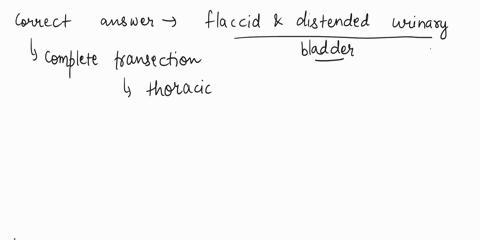 correct answer → flaccid & distended urinary
bladder
↳ Complete transection
↳ thoracic